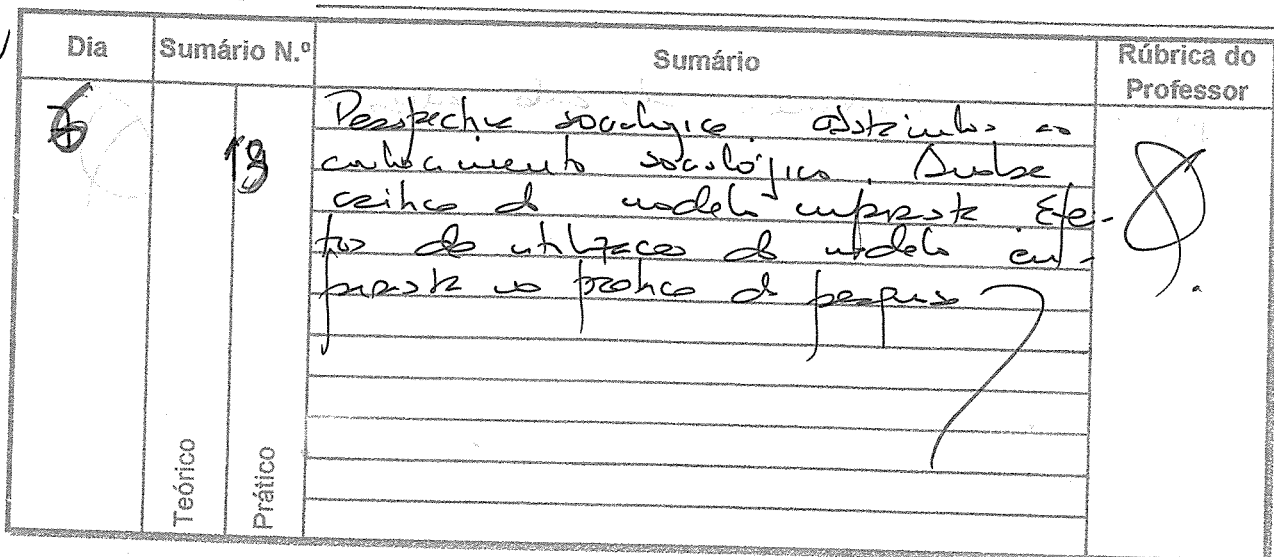 Dia Sumário N.º Sumário Rúbrica do Professor
6
19
Perspectiva sociológica. obstáculos ao
conhecimento sociológico. Análise
crítica do modelo empirista Efei-
tos da utilização do modelo em-
pirista na prática de pesquisa
Teórico
Prático